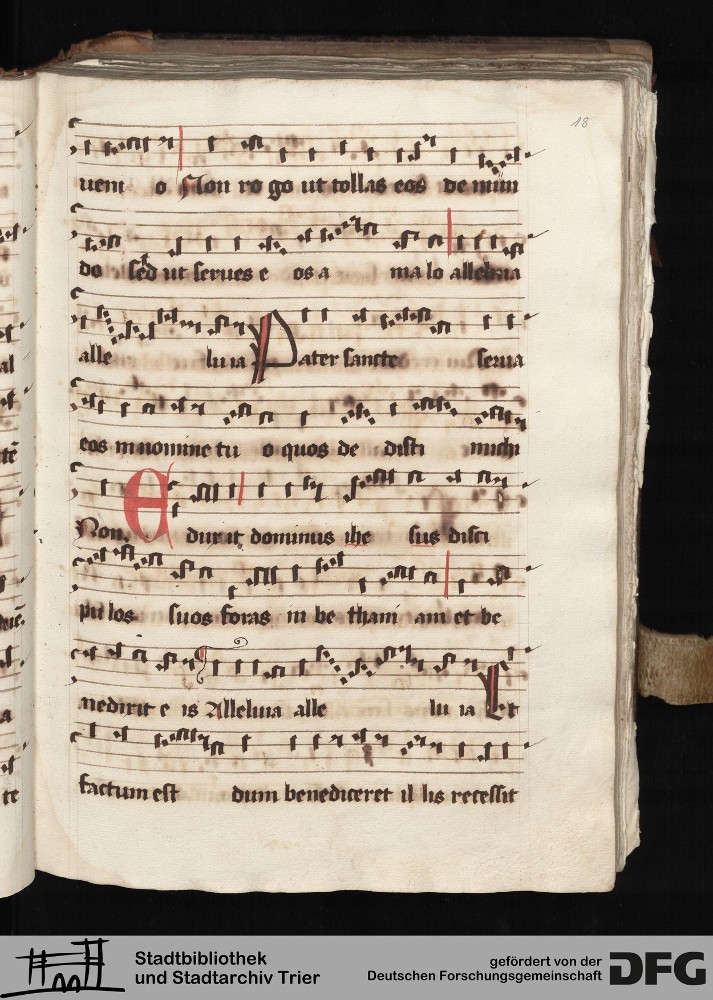 18
ueni o Non ro go ut tollas eos de mun
do sed ut serues e os a ma lo alleluia
alle lu ia Pater sancte serua
eos in nomine tu o quos de disti michi
Non. Eduxit dominus ihe sus disci
pu los suos foras in be thani am et be
nedixit e is Alleluia alle lu ia Et
factum est dum benediceret il lis recessit
Stadtbibliothek
und Stadtarchiv Trier
gefördert von der
Deutschen Forschungsgemeinschaft
DFG